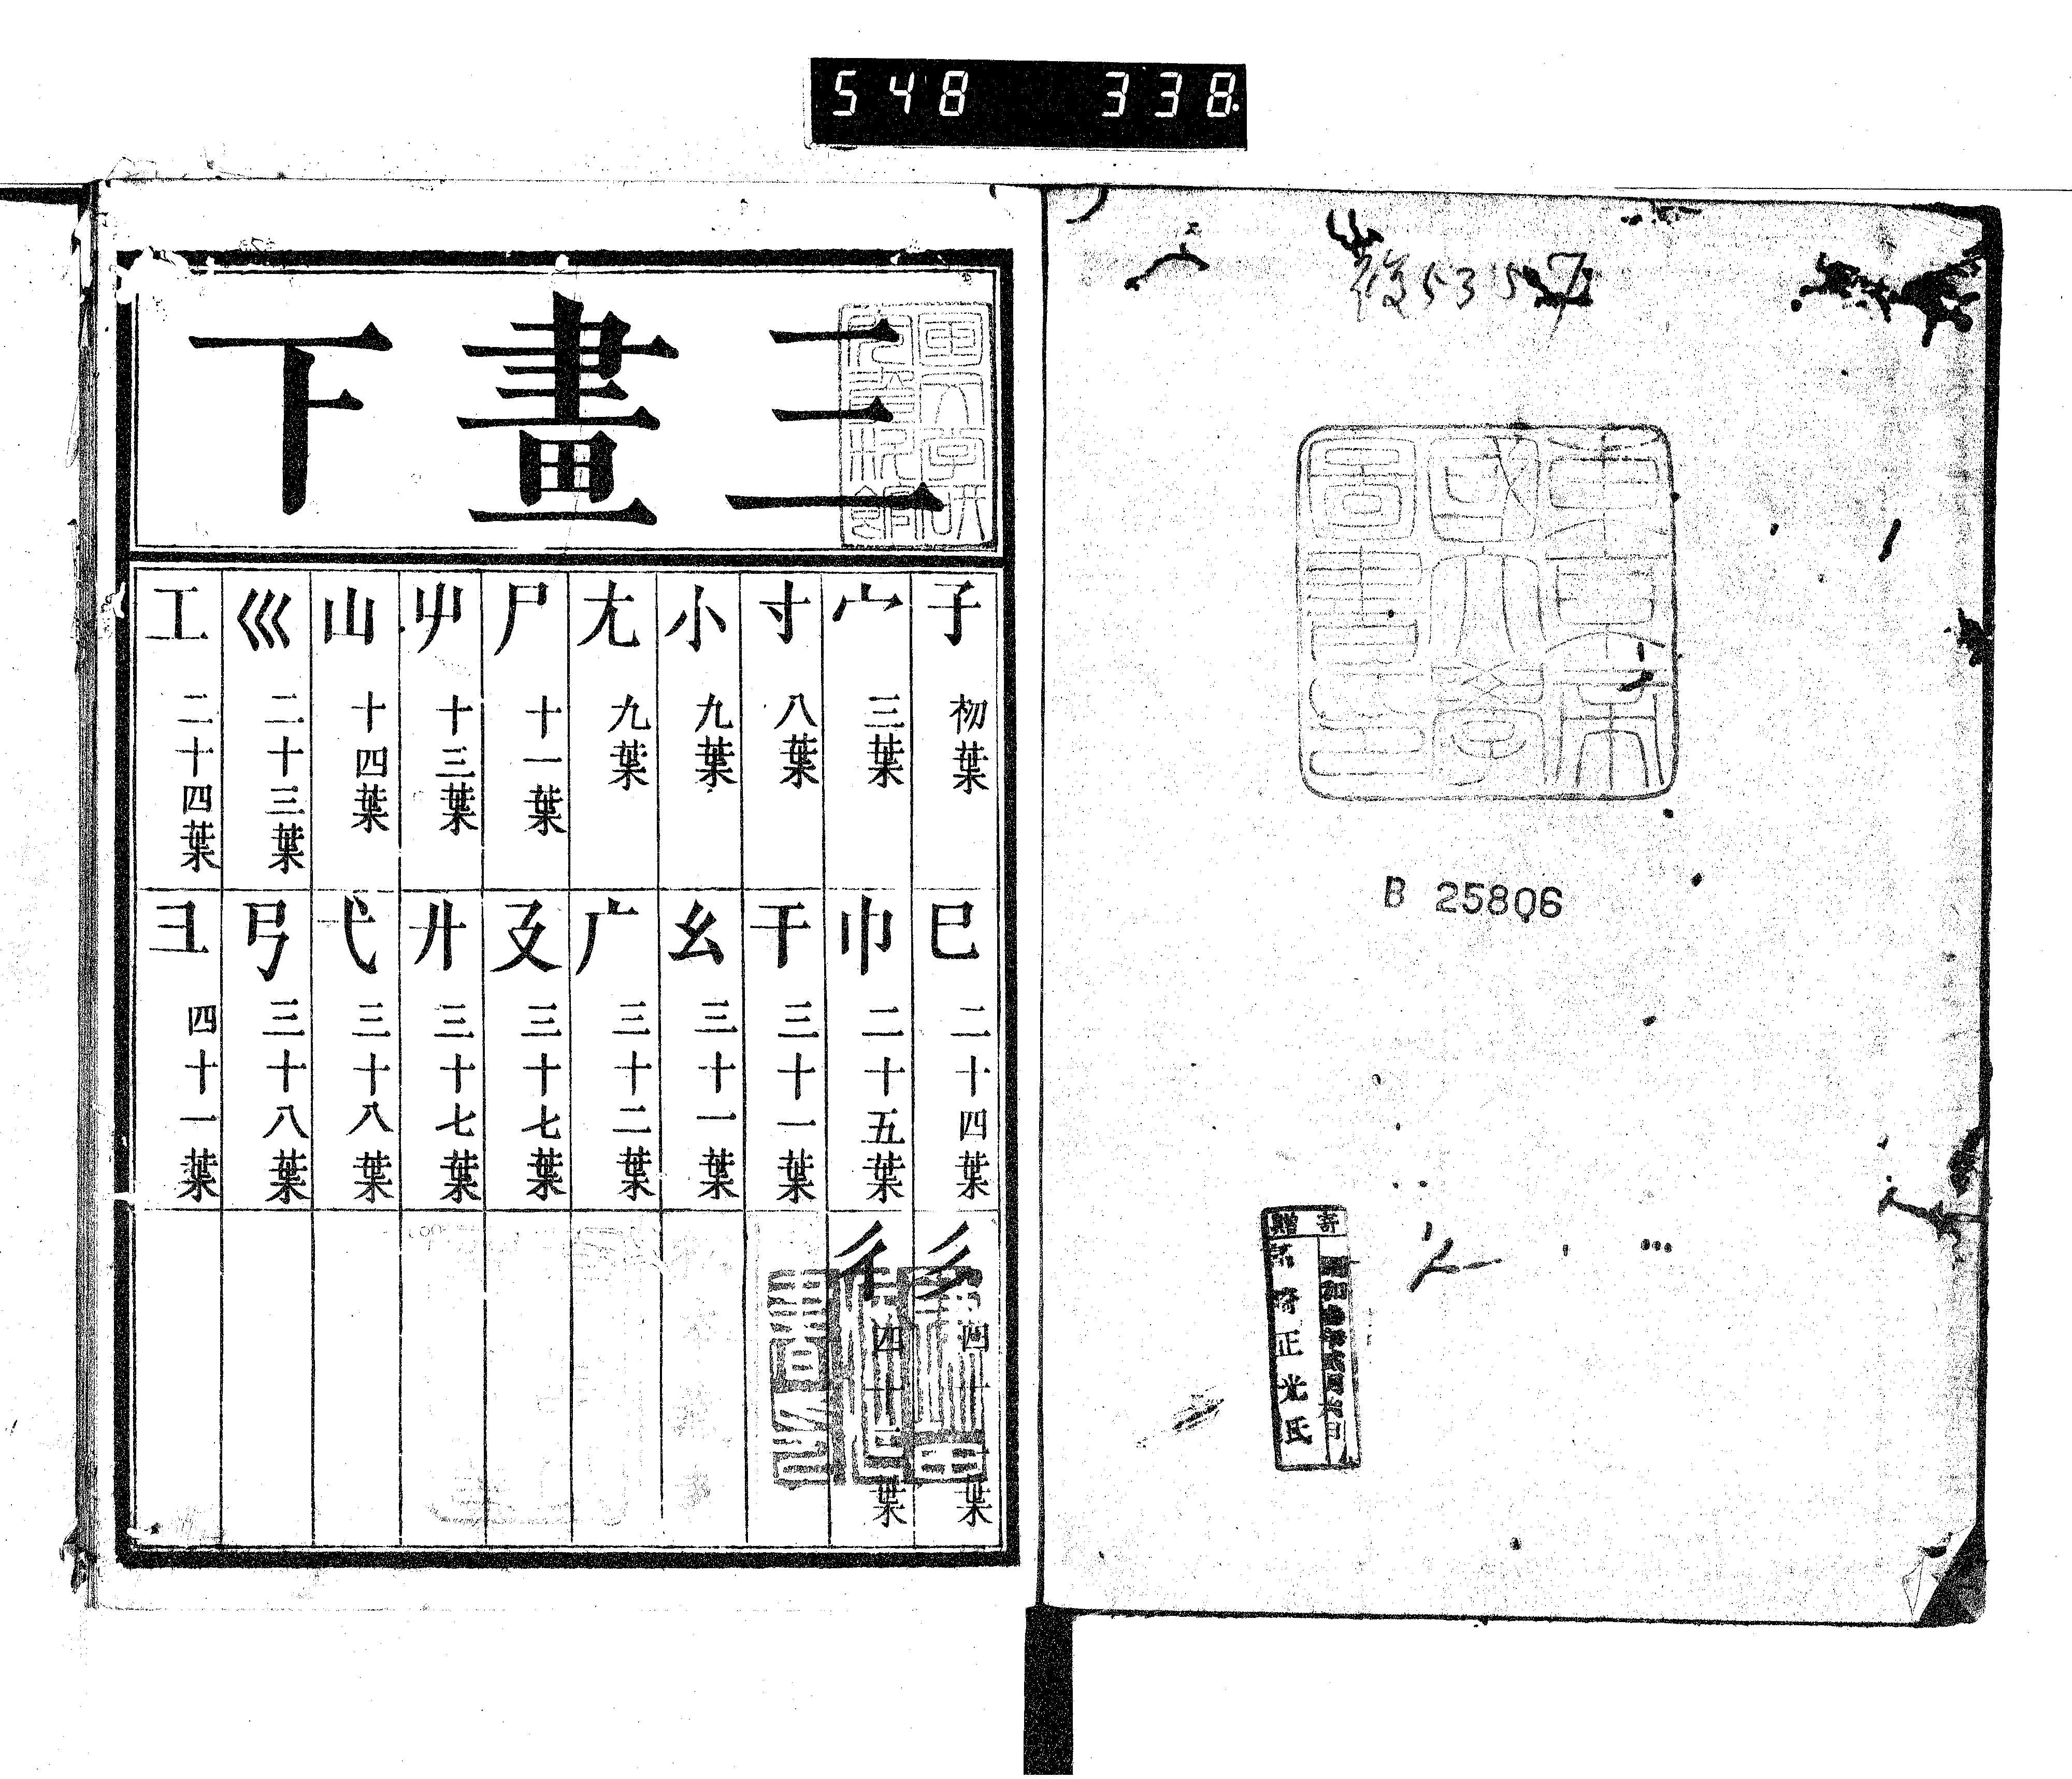 548 338
復53557
東京帝
國大學
圖書印
B 25806
寄贈
正光氏
三畫下
子 初葉
宀 三葉
寸 八葉
小 九葉
尢 九葉
尸 十一葉
屮 十三葉
山 十四葉
巛 二十三葉
工 二十四葉
巳 二十四葉
巾 二十五葉
干 三十一葉
幺 三十一葉
广 三十二葉
廴 三十七葉
廾 三十七葉
弋 三十八葉
弓 三十八葉
彐 四十一葉
彡 四十一葉
彳 四十二葉